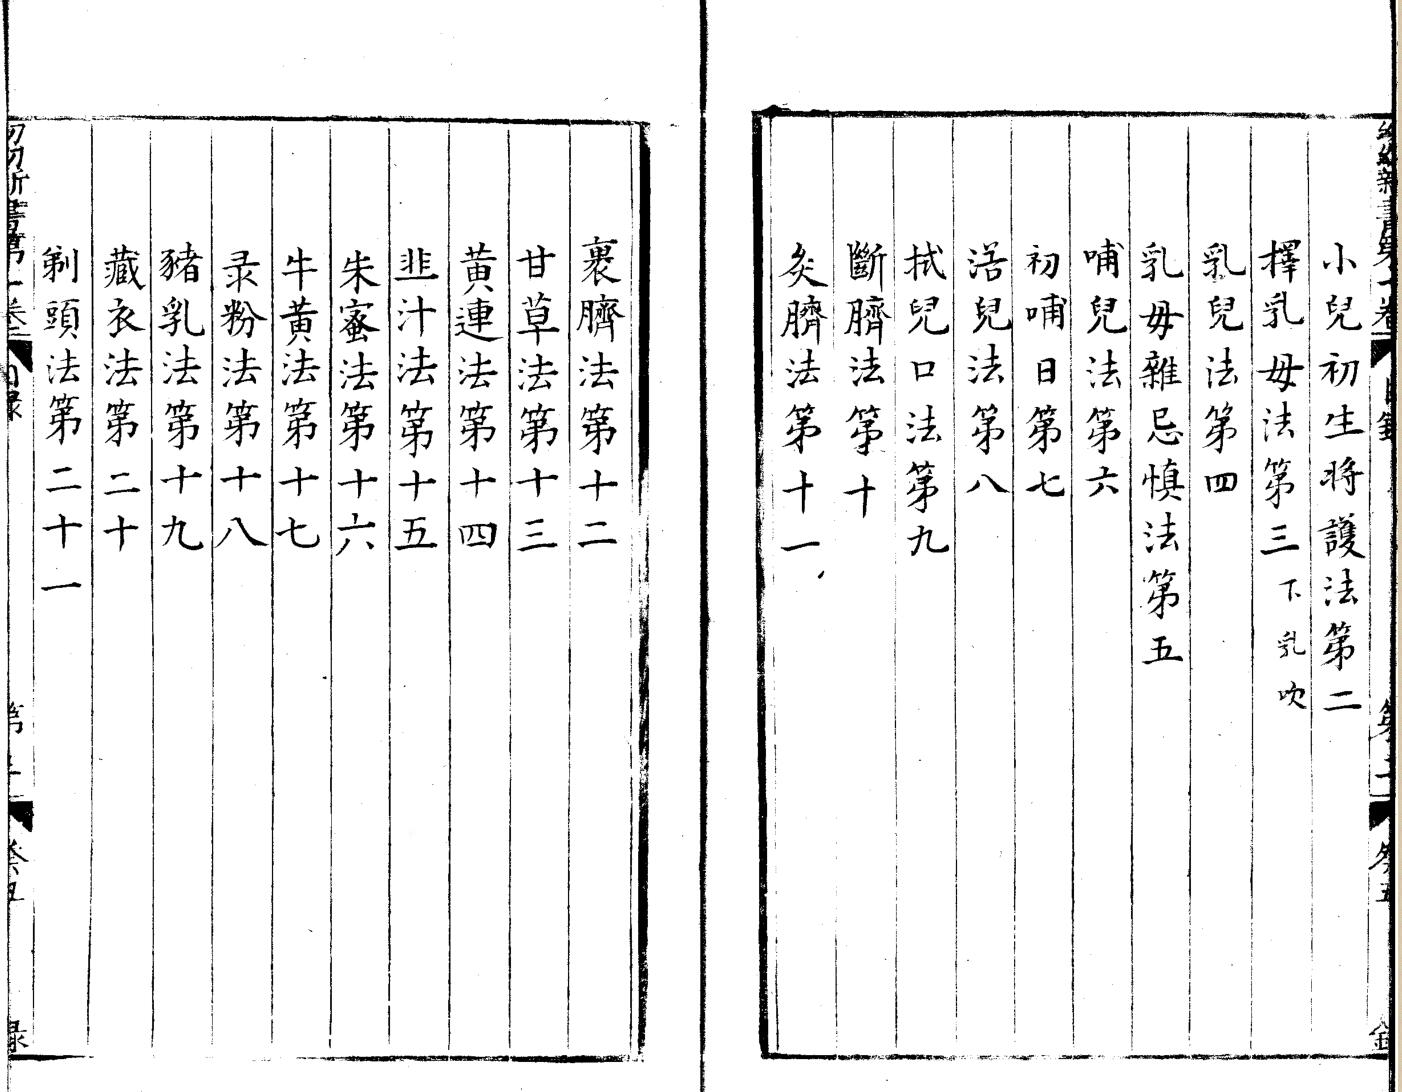 小兒初生将護法第二
擇乳母法第三 下乳吹
乳兒法第四
乳母雜忌慎法第五
哺兒法第六
初哺日第七
浴兒法第八
拭兒口法第九
斷臍法第十
灸臍法第十一
裹臍法第十二
甘草法第十三
黄連法第十四
韭汁法第十五
朱蜜法第十六
牛黄法第十七
录粉法第十八
豬乳法第十九
藏衣法第二十
剃頭法第二十一